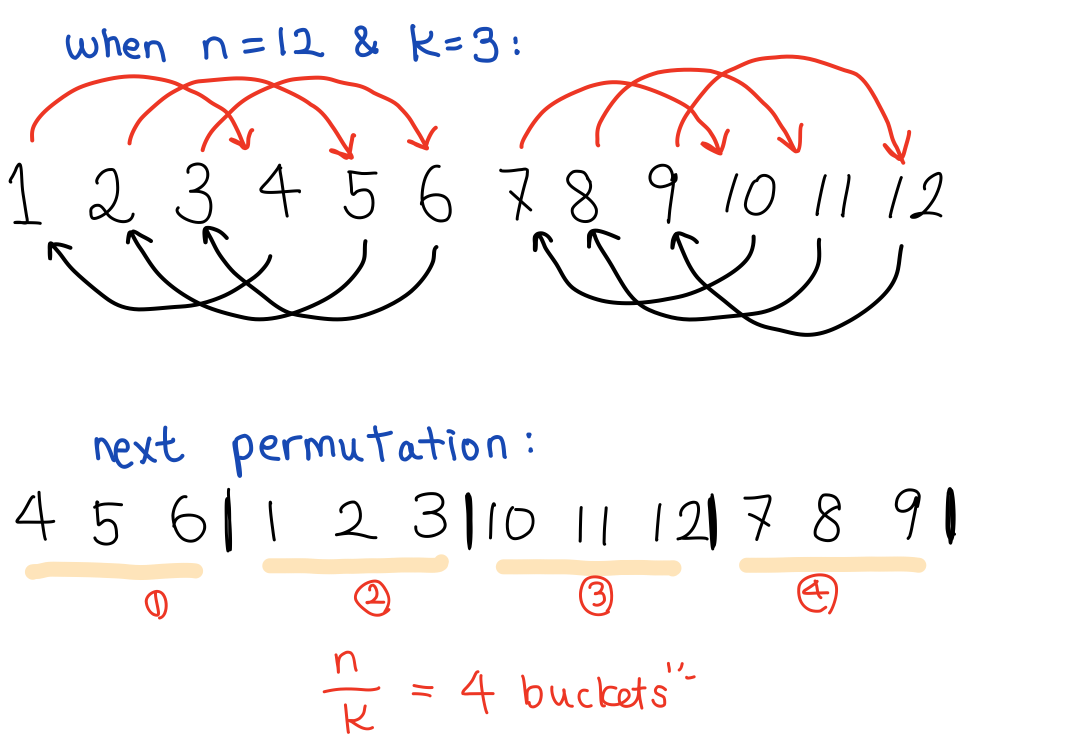 when n=12 & k=3:
1 2 3 4 5 6 7 8 9 10 11 12
next permutation:
4 5 6 | 1 2 3 | 10 11 12 | 7 8 9 |
① ② ③ ④
n
k = 4 buckets